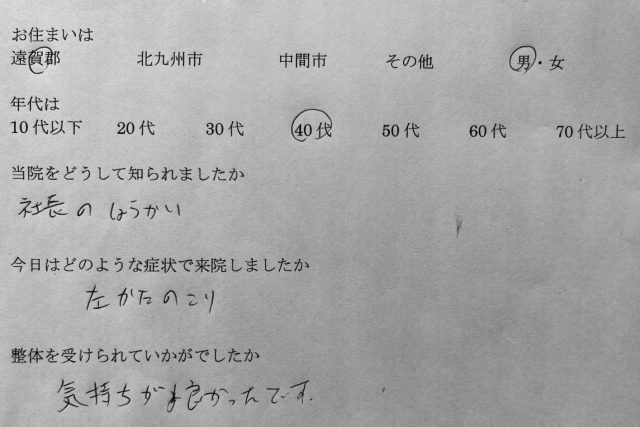 お住まいは
遠賀郡 北九州市 中間市 その他 男・女
年代は
10代以下 20代 30代 40代 50代 60代 70代以上
当院をどうして知られましたか
社長のしょうかい
今日はどのような症状で来院しましたか
左かたのこり
整体を受けられていかがでしたか
気持ちが良かったです.